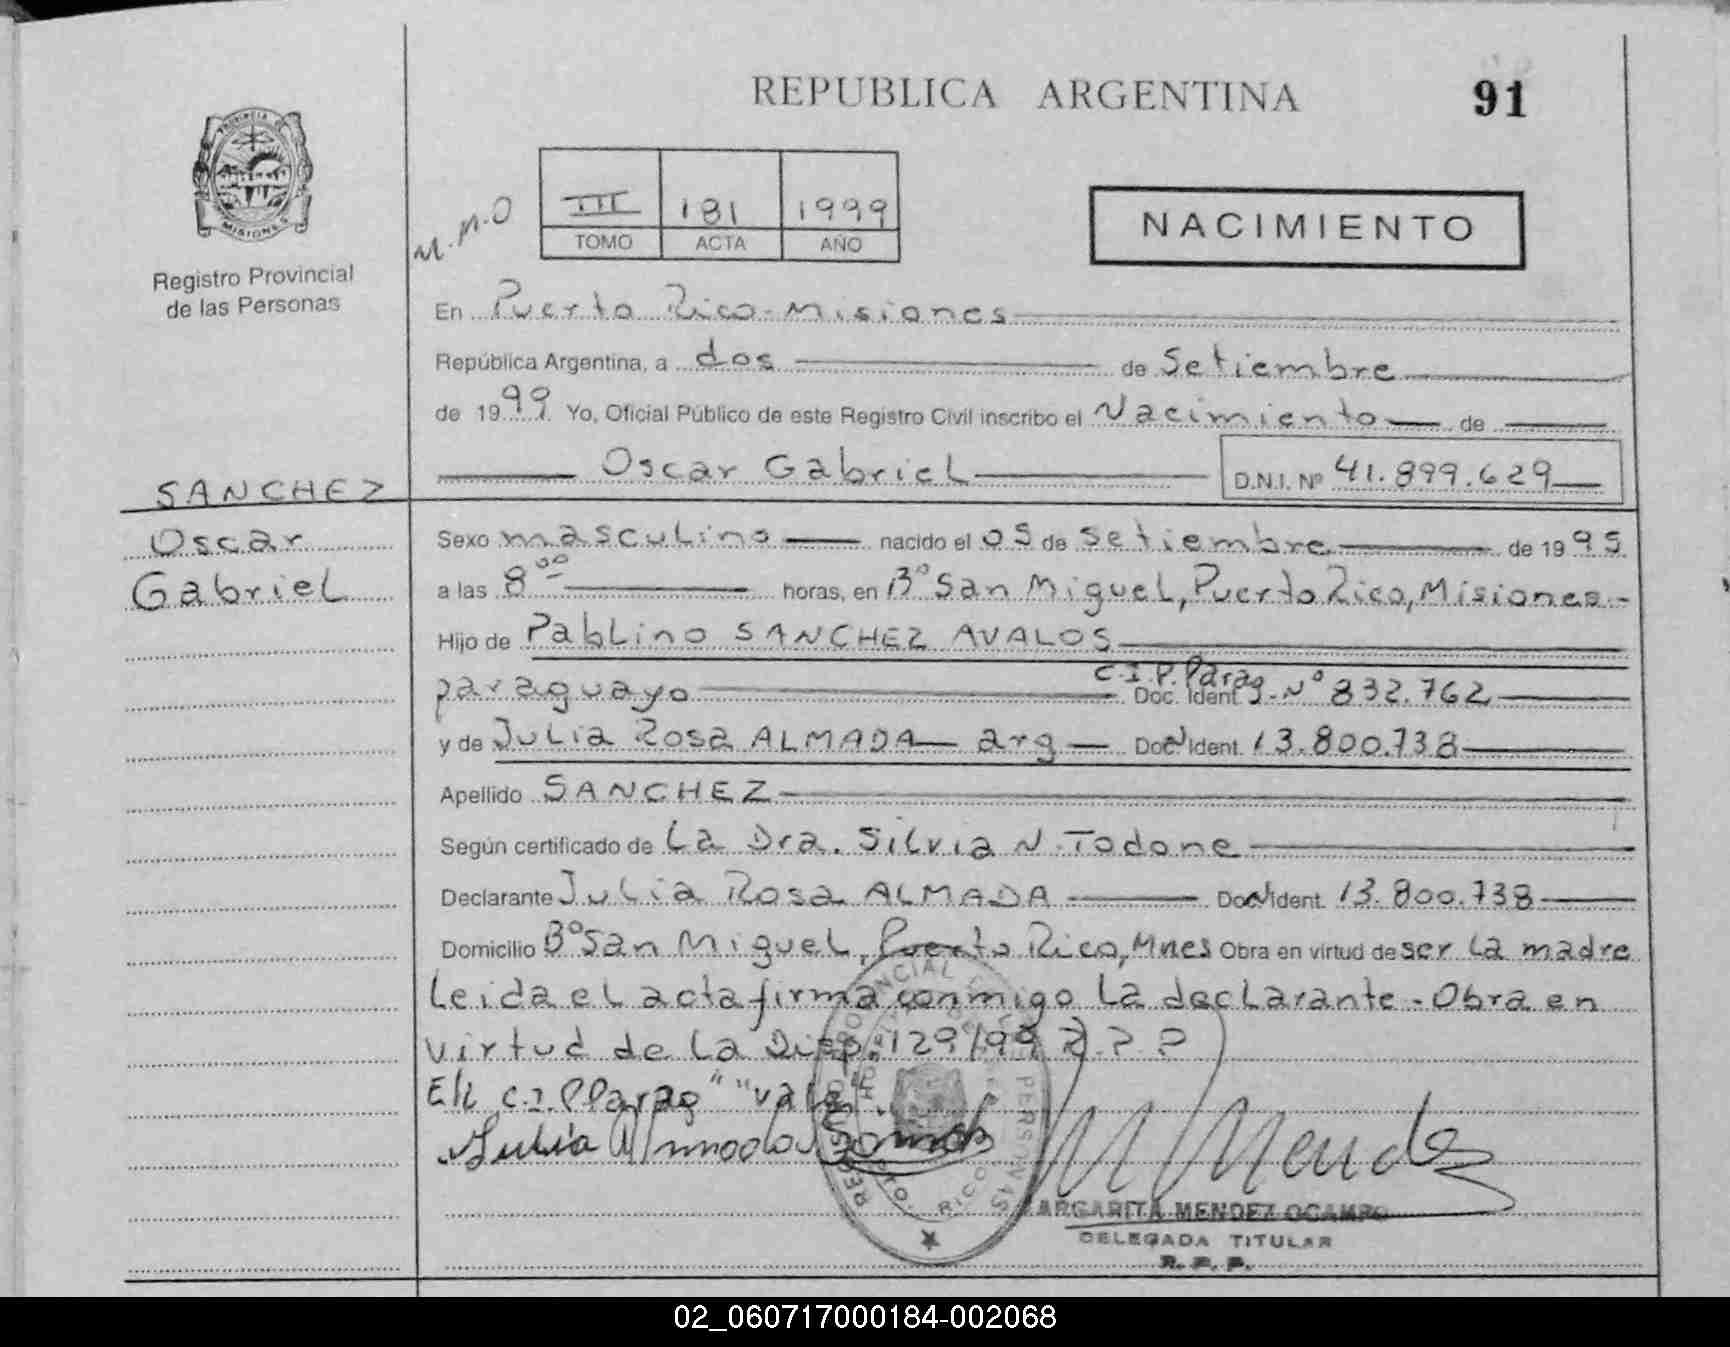 REPUBLICA ARGENTINA
91
PROVINCIA DE
MISIONES
Registro Provincial
de las Personas
M.M.O
III 181 1999
TOMO ACTA AÑO
NACIMIENTO
En Puerto Rico - Misiones
República Argentina, a dos de Setiembre
de 1999. Yo, Oficial Público de este Registro Civil inscribo el Nacimiento de
Oscar Gabriel D.N.I. Nº 41.899.629
SANCHEZ
Oscar
Gabriel
Sexo masculino nacido el 05 de setiembre de 1995
a las 8ºº horas, en Bº San Miguel, Puerto Rico, Misiones.-
Hijo de Pablino SANCHEZ AVALOS
paraguayo C.I.P. Parag. Doc. Ident. Nº 832.762
y de Julia Rosa ALMADA arg Doc. Ident. 13.800.738
Apellido SANCHEZ
Según certificado de La Dra. Silvia N. Todone
Declarante Julia Rosa ALMADA Doc. Ident. 13.800.738
Domicilio Bº San Miguel, Puerto Rico, Mnes Obra en virtud de ser la madre
Leida el acta firma conmigo la declarante - Obra en
virtud de la Disp. 129/99 R.P.P
E/L C.I.P Parag" "vale"
Julia Almada
M Mendez
MARGARITA MENDEZ OCAMPO
DELEGADA TITULAR
R. P. P.
02_060717000184-002068